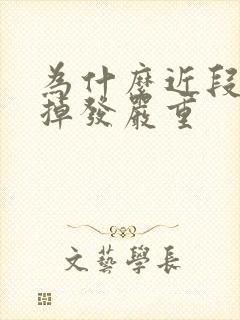 為什麼近段
掉發嚴重
文藝學長